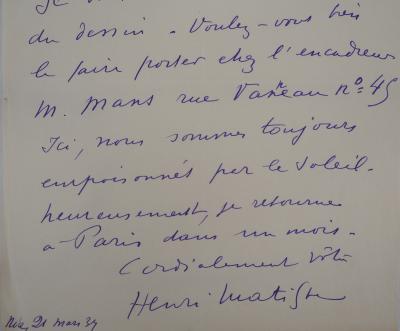 du dessin - Voulez-vous bien
le faire porter chez l'encadreur
M. Mans rue Vaneau nº 45
Ici, nous sommes toujours
empoisonnés par le soleil -
heureusement, je retourne
à Paris dans un mois -
Cordialement vôtre
Henri Matisse
Nice, 21 mars 39